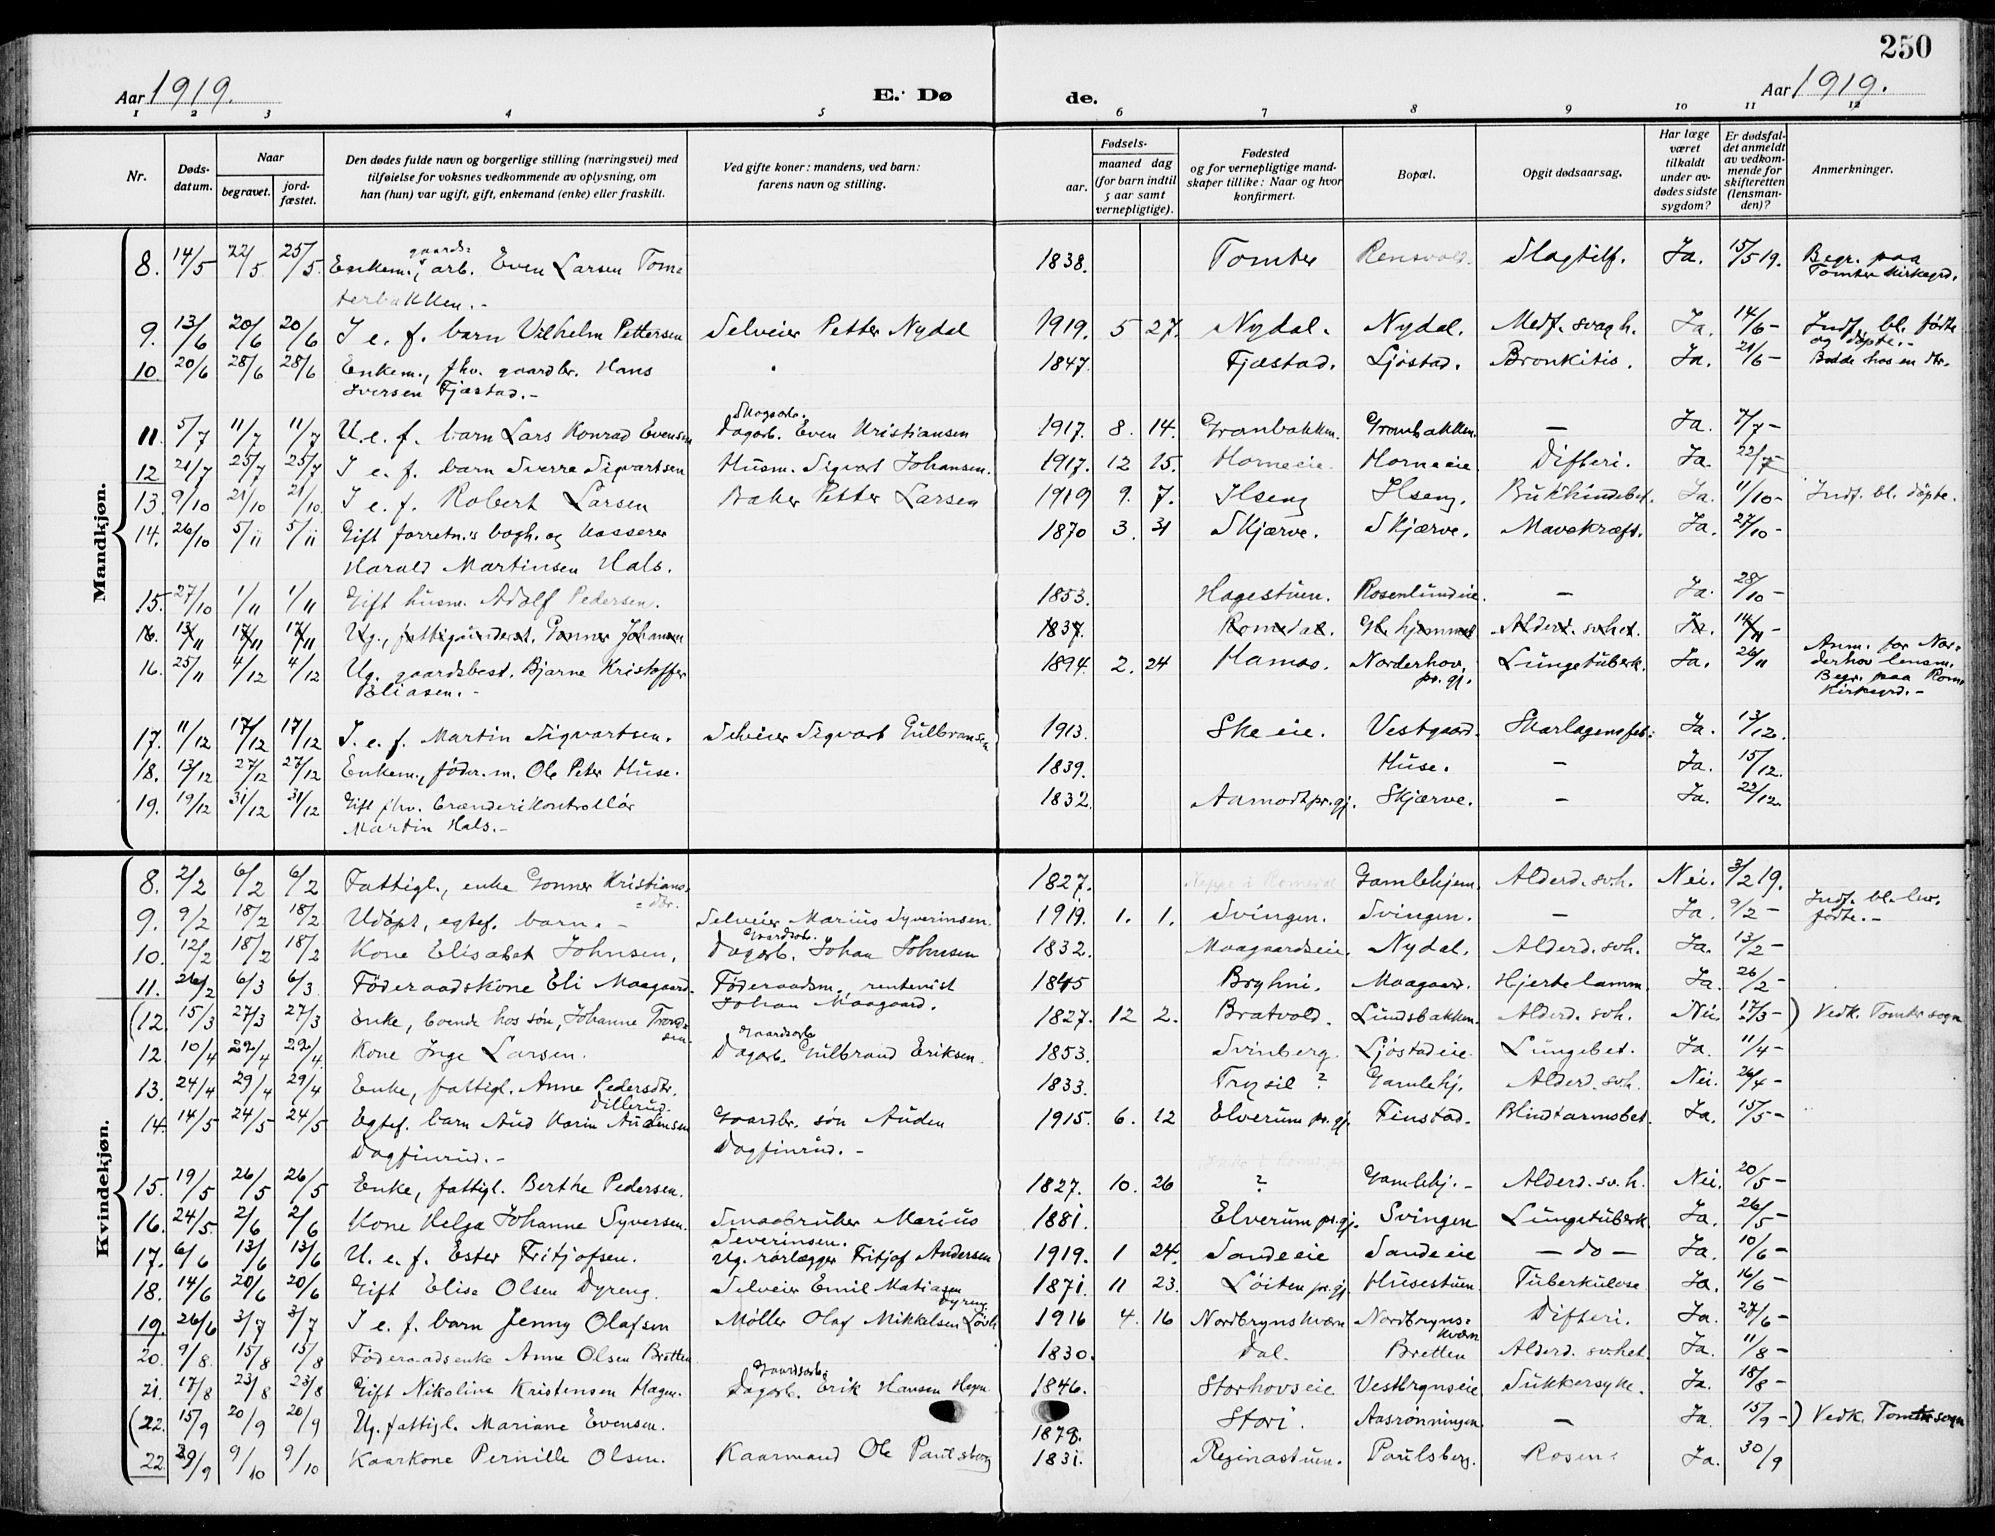 250
Aar 1919. E. Dø de. Aar 1919.
1 2 3 4 5 6 7 8 9 10 11 12
Nr.
Døds-
datum.
Naar
begravet.
jord-
fæstet.
Den dødes fulde navn og borgerlige stilling (næringsvei) med
tilføielse for voksnes vedkommende av oplysning, om
han (hun) var ugift, gift, enkemand (enke) eller fraskilt.
Ved gifte koner: mandens, ved barn:
farens navn og stilling.
Fødsels-
aar.
maaned dag
(for barn indtil
5 aar samt
vernepligtige).
Fødested
og for vernepligtige mand-
skaper tillike: Naar og hvor
konfirmert.
Bopæl.
Opgit dødsaarsag.
Har læge
været
tilkaldt
under av-
dødes sidste
sygdom?
Er dødsfal-
det anmeldt
av vedkom-
mende for
skifteretten
(lensman-
den)?
Anmerkninger.
Mandkjøn.
8. 14/5 22/5 25/5. Enkem., gaards- arb. Even Larsen Tom- 1838. Tomter Rensvold. Slagtilf. Ja. 15/5 19. Begr. paa
terbakken.- Tomter kirkegrd.
9. 13/6 20/6 20/6 I e. f. barn Vilhelm Pettersen Selveier Petter Nydal 1919. 5 27. Nydal. Nydal. Medf. svagh. Ja. 14/6 - Indf. bl. fødte
og døpte.-
10 20/6 28/6 28/6 Enkem., fhv. gaardbr. Hans 1847. Fjæstad. Ljøstad. Bronkitis. Ja. 21/6 - Bodde hos en dtr.
Iversen Fjæstad.-
11. 5/7 11/7 11/7 U. e. f. barn Lars Konrad Evensen Skogsarb. Dagarb. Even Kristiansen 1917. 8. 14. Granbakken. Granbakken. — Ja. 7/7 -
12 21/7 25/7 25/7 I e. f. barn Sverre Sigvartsen Husm. Sigvart Johansen. 1917. 12 15. Horneeie. Horneeie. Difteri. Ja. 22/7 -
13. 9/10 21/10 21/10. I e. f. Robert Larsen Baker Petter Larsen 1919 9. 7. Ilseng Ilseng. Bukhindebet. Ja. 11/10- Indf. bl. døpte.
14. 26/10 5/11 5/11 Gift forretn., bogh. og kasserer 1870 3. 31 Skjærve. Skjærve. Mavekræft. Ja. 27/10-
Harald Martinsen Hals.
15. 27/10 1/11 1/11 Gift husm. Adolf Pedersen. 1853. Hagestuen. Rosenlundeie. — Ja. 28/10 -
16. 13/11 17/11 17/11 Ug., fattigunderst. Gunner Johansen 1837. Romedal. Gl. hjemmet Alderd. svhet. Ja. 14/11 -
16. 25/11 4/12 4/12 Ug. gaardsbest. Bjarne Kristoffer 1894. 2. 24 Hamar. Norderhov, pr. gj. Lungetuberk. Ja. 26/11 Anm. for Nor-
derhov lensm.
Begr. paa Rom.
kirkegrd.-
Eliasen.-
17. 11/12 17/12 17/12 I. e. f. Martin Sigvartsen. Selveier Sigvart Gulbransen 1913. Ske eie. Vestgaard. Skarlagensfeb. Ja. 13/12.
18. 13/12 27/12 27/12 Enkem., føder. m. Ole Peter Huse. 1839. Huse. — Ja. 15/12.
19. 19/12 31/12 31/12 Gift fhv. brænderikontrollør 1832. Aamodt pr. gj. Skjærve. — Ja. 22/12.
Martin Hals.-
Kvindekjøn.
8. 2/2 6/2 6/2 Fattigl., enke Gonner Kristians- 1827. Gamlehjem. Alderd. svh. Nei. 3/2 19.
dtr.
9. 9/2 18/2 18/2 Udøpt, egtef. barn.- Selveier Marius Syverinsen. 1919. 1. 1. Svingen. Svingen. — Ja. 9/2 - Indf. bl. lev.
fødte.-
10. 12/2 18/2 18/2 Kone Elisabet Johnsen. Gaardsarb. Dagarb. Johan Johnsen 1832. Maagaardseie. Nydal. Alderd. svh. Ja. 13/2 -
11. 26/2 6/3 6/3. Føderaadskone Eli Maagaard. Føderaadsm. rentenist
Johan Maagaard. 1845 Bryhni. Maagaard. Hjertelamm. Ja. 26/2 -
(12. 15/3 27/3 27/3 Enke, boende hos søn, Johanne Trond-
sen. 1827. 12 2. Bratvold. Lundsbakken. Alderd. svh. Nei. 17/3 - ) Vedk. Tomter sogn
12. 10/4 22/4 22/4. Kone Inge Larsen. Gaardsarb. Dagarb. Gulbrand Eriksen. 1853. Svinberg. Ljøstadeie. Lungebet. Ja. 11/4 -
13. 24/4 29/4 29/4 Enke, fattigl. Anne Pedersdtr.
Dillerud. 1833. Trysil ? Gamlehj. Alderd. svh. Nei. 26/4 -
14. 14/5 24/5 24/5 Egtef. barn Aud Karin Audensen Gaardbr. søn Auden 1915. 6. 12 Elverum pr. gj. Finstad. Blindtarmsbet. Ja. 15/5 -
Dagfinrud.- Dagfinrud.-
15. 19/5 26/5 26/5 Enke, fattigl. Berthe Pedersen. 1827. 10. 26 ? Gamlehj.- Alderd. sv. h. Nei. 20/5 -
16. 24/5. 2/6 2/6 Kone Helga Johanne Syversen. Smaabruker Marius
Severinsen. 1881. Elverum pr. gj. Svingen Lungetuberk. Ja. 26/5 -
17. 6/6 13/6 13/6 U. e. f. Ester Fritjofsen. Ug. rørlægger Fritjof Andersen 1919. 1 24. Sandeeie Sandeeie — do — Ja. 10/6 -
18. 14/6 20/6 20/6 Gift Elise Olsen Dyreng. Selveier Emil Matiasen
Dyreng. 1871. 11 23. Løiten pr. gj. Husestuen. Tuberkulose Ja. 16/6 -
19. 26/6 3/7 3/7 I e. f. barn Jenny Olafsen Møller Olaf Mikkelsen 1916 4. 16 Nordbrynskværn Nordbryns-
kværn Difteri. Ja. 27/6 -
20. 9/8. 15/8 15/8 Føderaadsenke Anne Olsen Bretten 1830. Dal. Bretten Alderd. svhet. Ja. 11/8 -
21. 17/8 23/8 23/8 Gift Nikoline Kristensen Hagen. Gaardsarb. Dagarb. Erik Hansen Hagen 1846. Storhovseie Vestbrynseie Sukkersyke. Ja. 18/8 -
(22. 15/9 20/9 20/9 Ug. fattigl. Mariane Evensen. 1878. Stori. Aasrønningen. — Ja. 15/9 - ) Vedk. Tomter sogn
22. 29/9 9/10 9/10 Kaarkone Pernille Olsen. Kaarmand Ole Paulsberg 1831. Reginastuen. Paulsberg. Rosen. Ja. 30/9